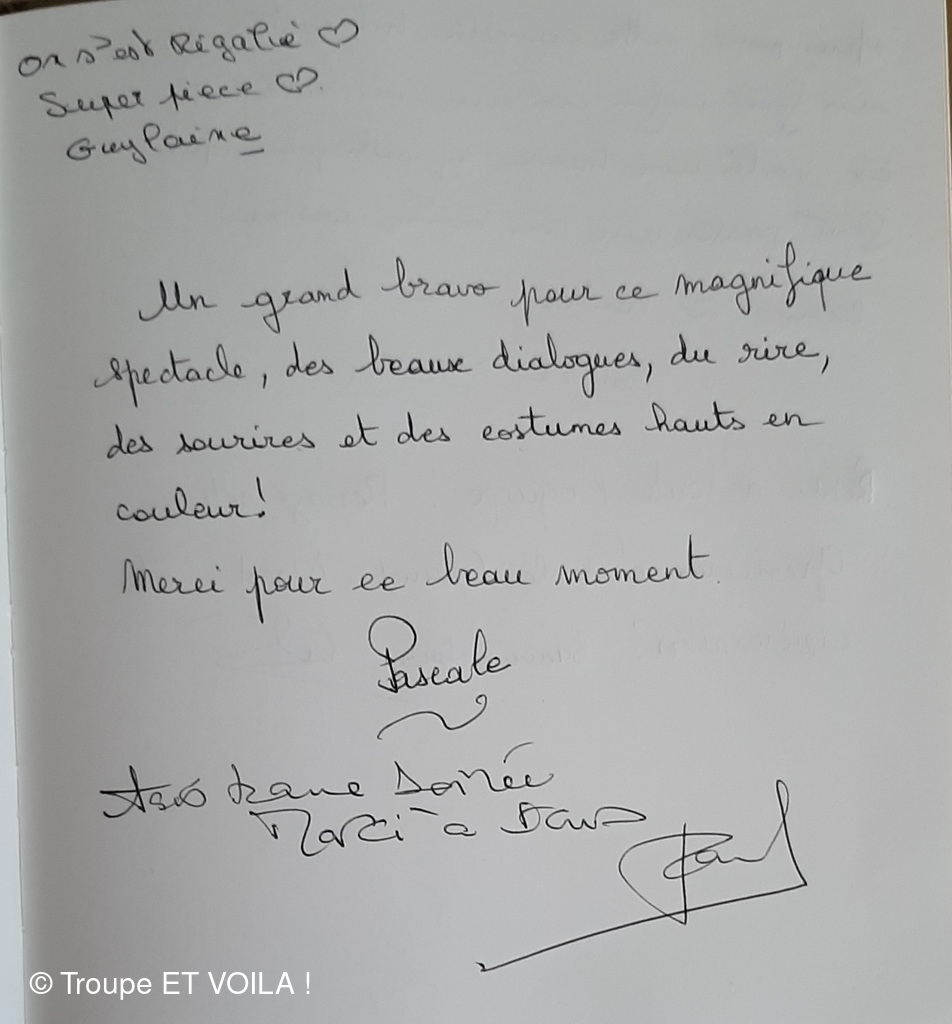 On s'est Régalié ♡
Super pièce ♡.
Guylaine
Un grand bravo pour ce magnifique
spectacle, des beaux dialogues, du rire,
des sourires et des costumes hauts en
couleur!
Merci pour ce beau moment.
Pascale
Soirée
Merci à Tous
Paul
© Troupe ET VOILA !